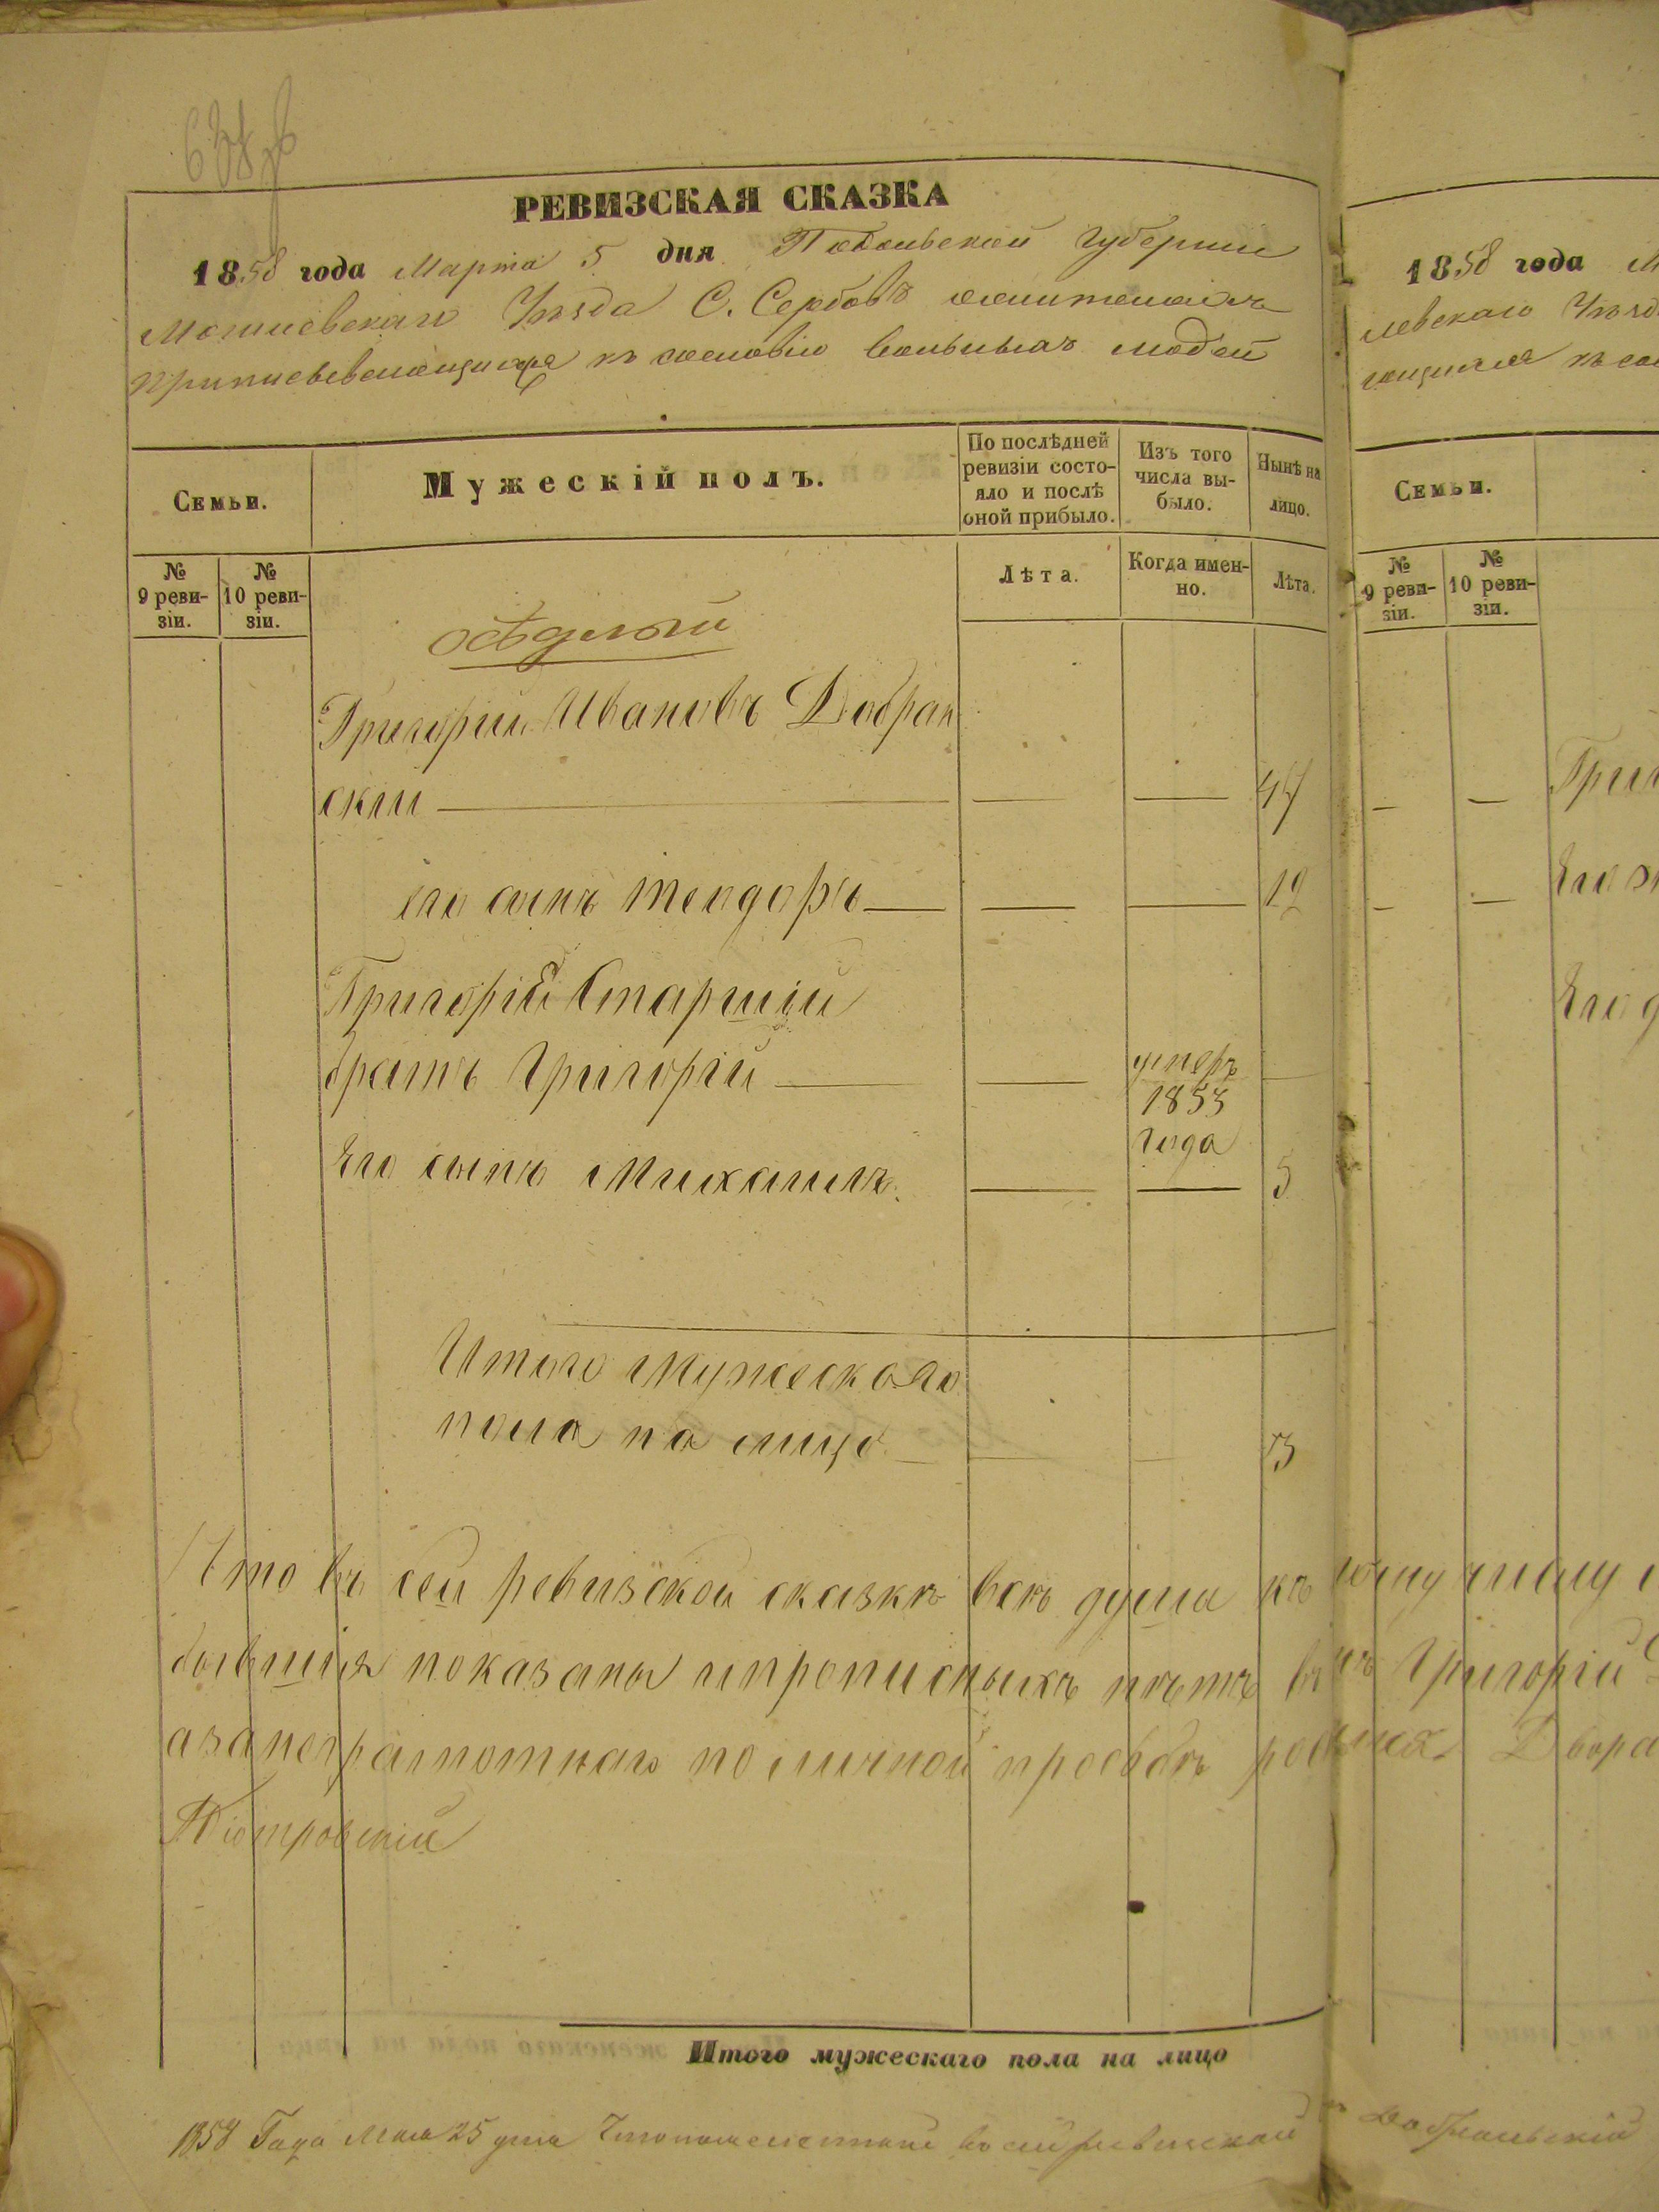 РЕВИЗСКАЯ СКАЗКА
1858 года Марта 5 дня Подольской Губернии
Могилевскаго Уезда С. Сербовъ
къ сословію вольныхъ людей
Семьи.
Мужескій полъ.
По послѣдней ревизіи состо-
яло и послѣ
оной прибыло.
Изъ того
числа вы-
было.
Нынѣ на
лицо.
№
9 реви-
зіи.
№
10 реви-
зіи.
Лѣта.
Когда имен-
но.
Лѣта.
осѣдлый
Григорий Ивановъ Добран
ский
47
его сынъ Теодоръ
12
Григорій Старшій
братъ Григорій
умеръ
1853
года
Его сынъ Михаилъ
5
Итого Мужескаго
пола на лицо
3
Что въ сей ревизской сказкѣ всѣ душа къ
бывшія показаны и прописныхъ нѣтъ въ
а за неграмотнаго по личной прозьбѣ
Піотровскій
Итого мужескаго пола на лицо
1858 Года Мая 25 дня
1858 года М
левскаго Уезд
Семьи.
№
9 реви-
зіи.
№
10 реви-
зіи.
Григ
Его ж
Его д
Григорій
Двора